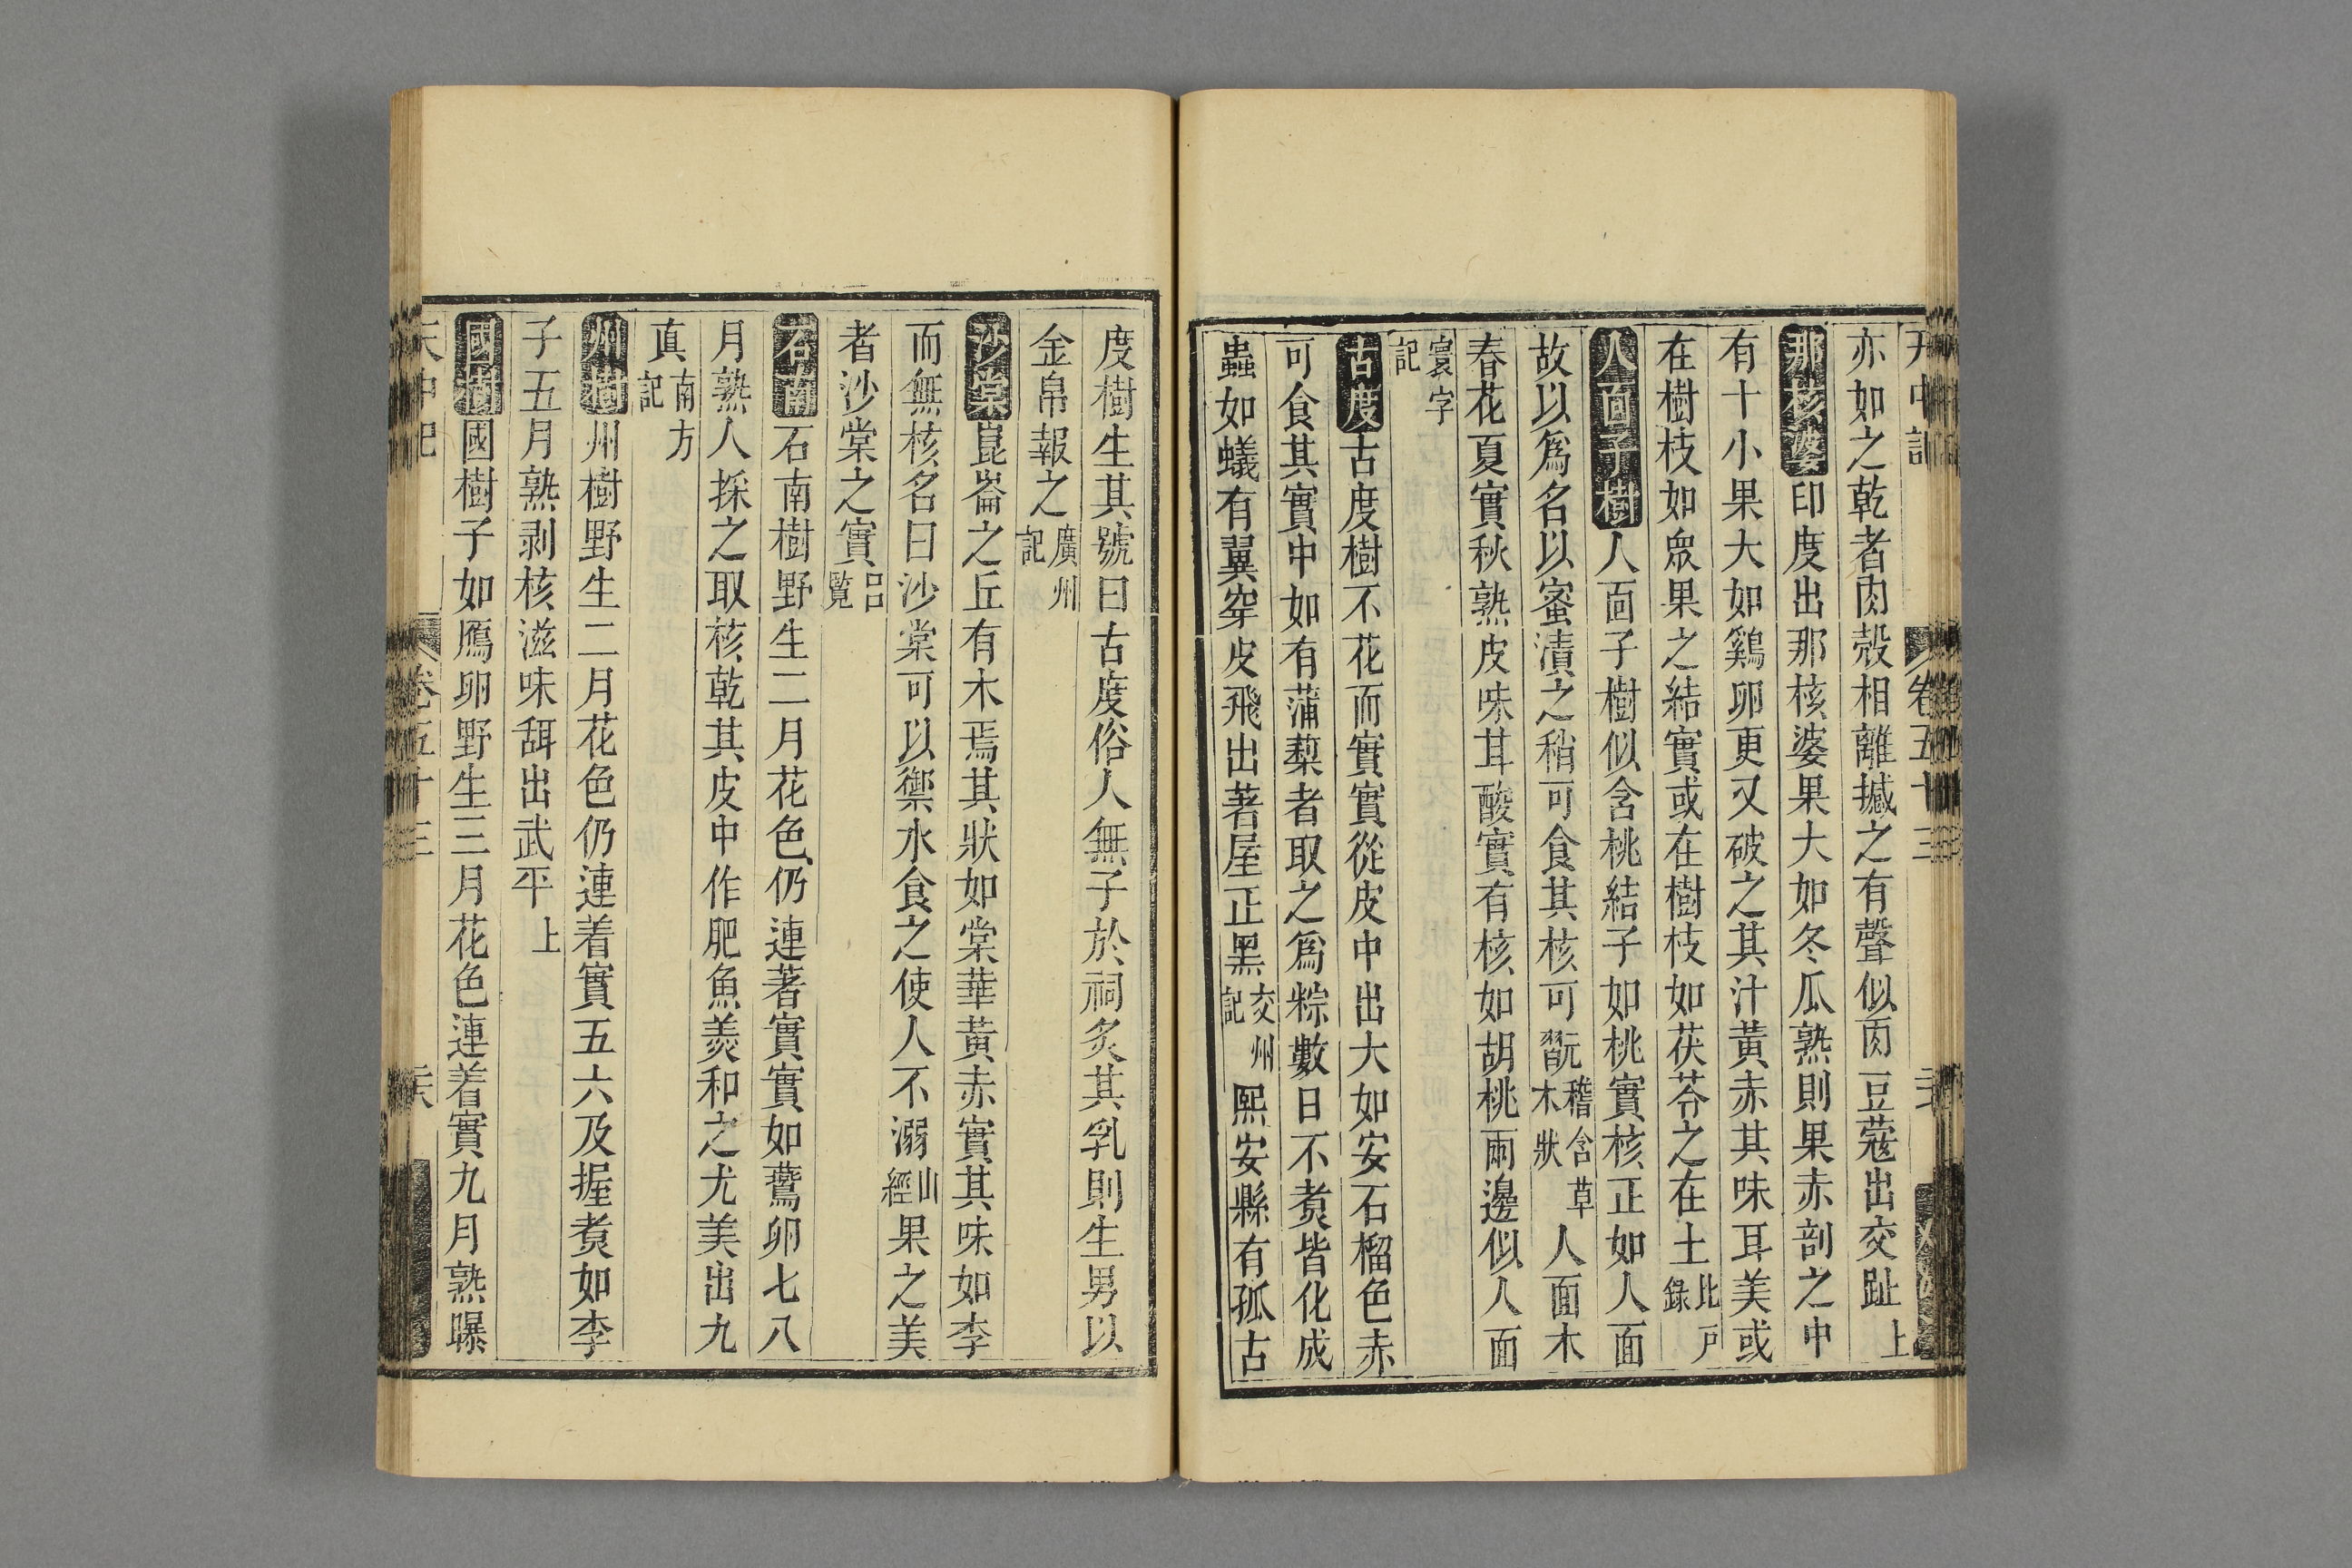 天中記 卷五十三
亦如之乾者肉殼相離撼之有聲似肉豆蔻出交趾上
那核婆印度出那核婆果大如冬瓜熟則果赤剖之中
有十小果大如鷄卵更又破之其汁黃赤其味耳美或
在樹枝如衆果之結實或在樹枝如茯苓之在土北戸錄
人面子樹人面子樹似含桃結子如桃實核正如人面
故以爲名以蜜漬之稍可食其核可翫稽含草木狀人面木
春花夏實秋熟皮味耳酸實有核如胡桃兩邊似人面
寰宇記
古度古度樹不花而實實從皮中出大如安石榴色赤
可食其實中如有蒲棃者取之爲粽數日不煑皆化成
蟲如蟻有翼穿皮飛出著屋正黑交州記熙安縣有孤古
度樹生其號曰古度俗人無子於祠炙其乳則生男以
金帛報之廣州記
沙棠崑崙之丘有木焉其狀如棠華黃赤實其味如李
而無核名曰沙棠可以禦水食之使人不溺山經果之美
者沙棠之實呂覽
石南石南樹野生二月花色仍連著實實如鷰卵七八
月熟人採之取核乾其皮中作肥魚羮和之尤美出九
真南方記
州樹州樹野生二月花色仍連着實五六及握煑如李
子五月熟剥核滋味甜出武平上
國樹國樹子如鴈卵野生三月花色連着實九月熟曝
天中記 卷五十三